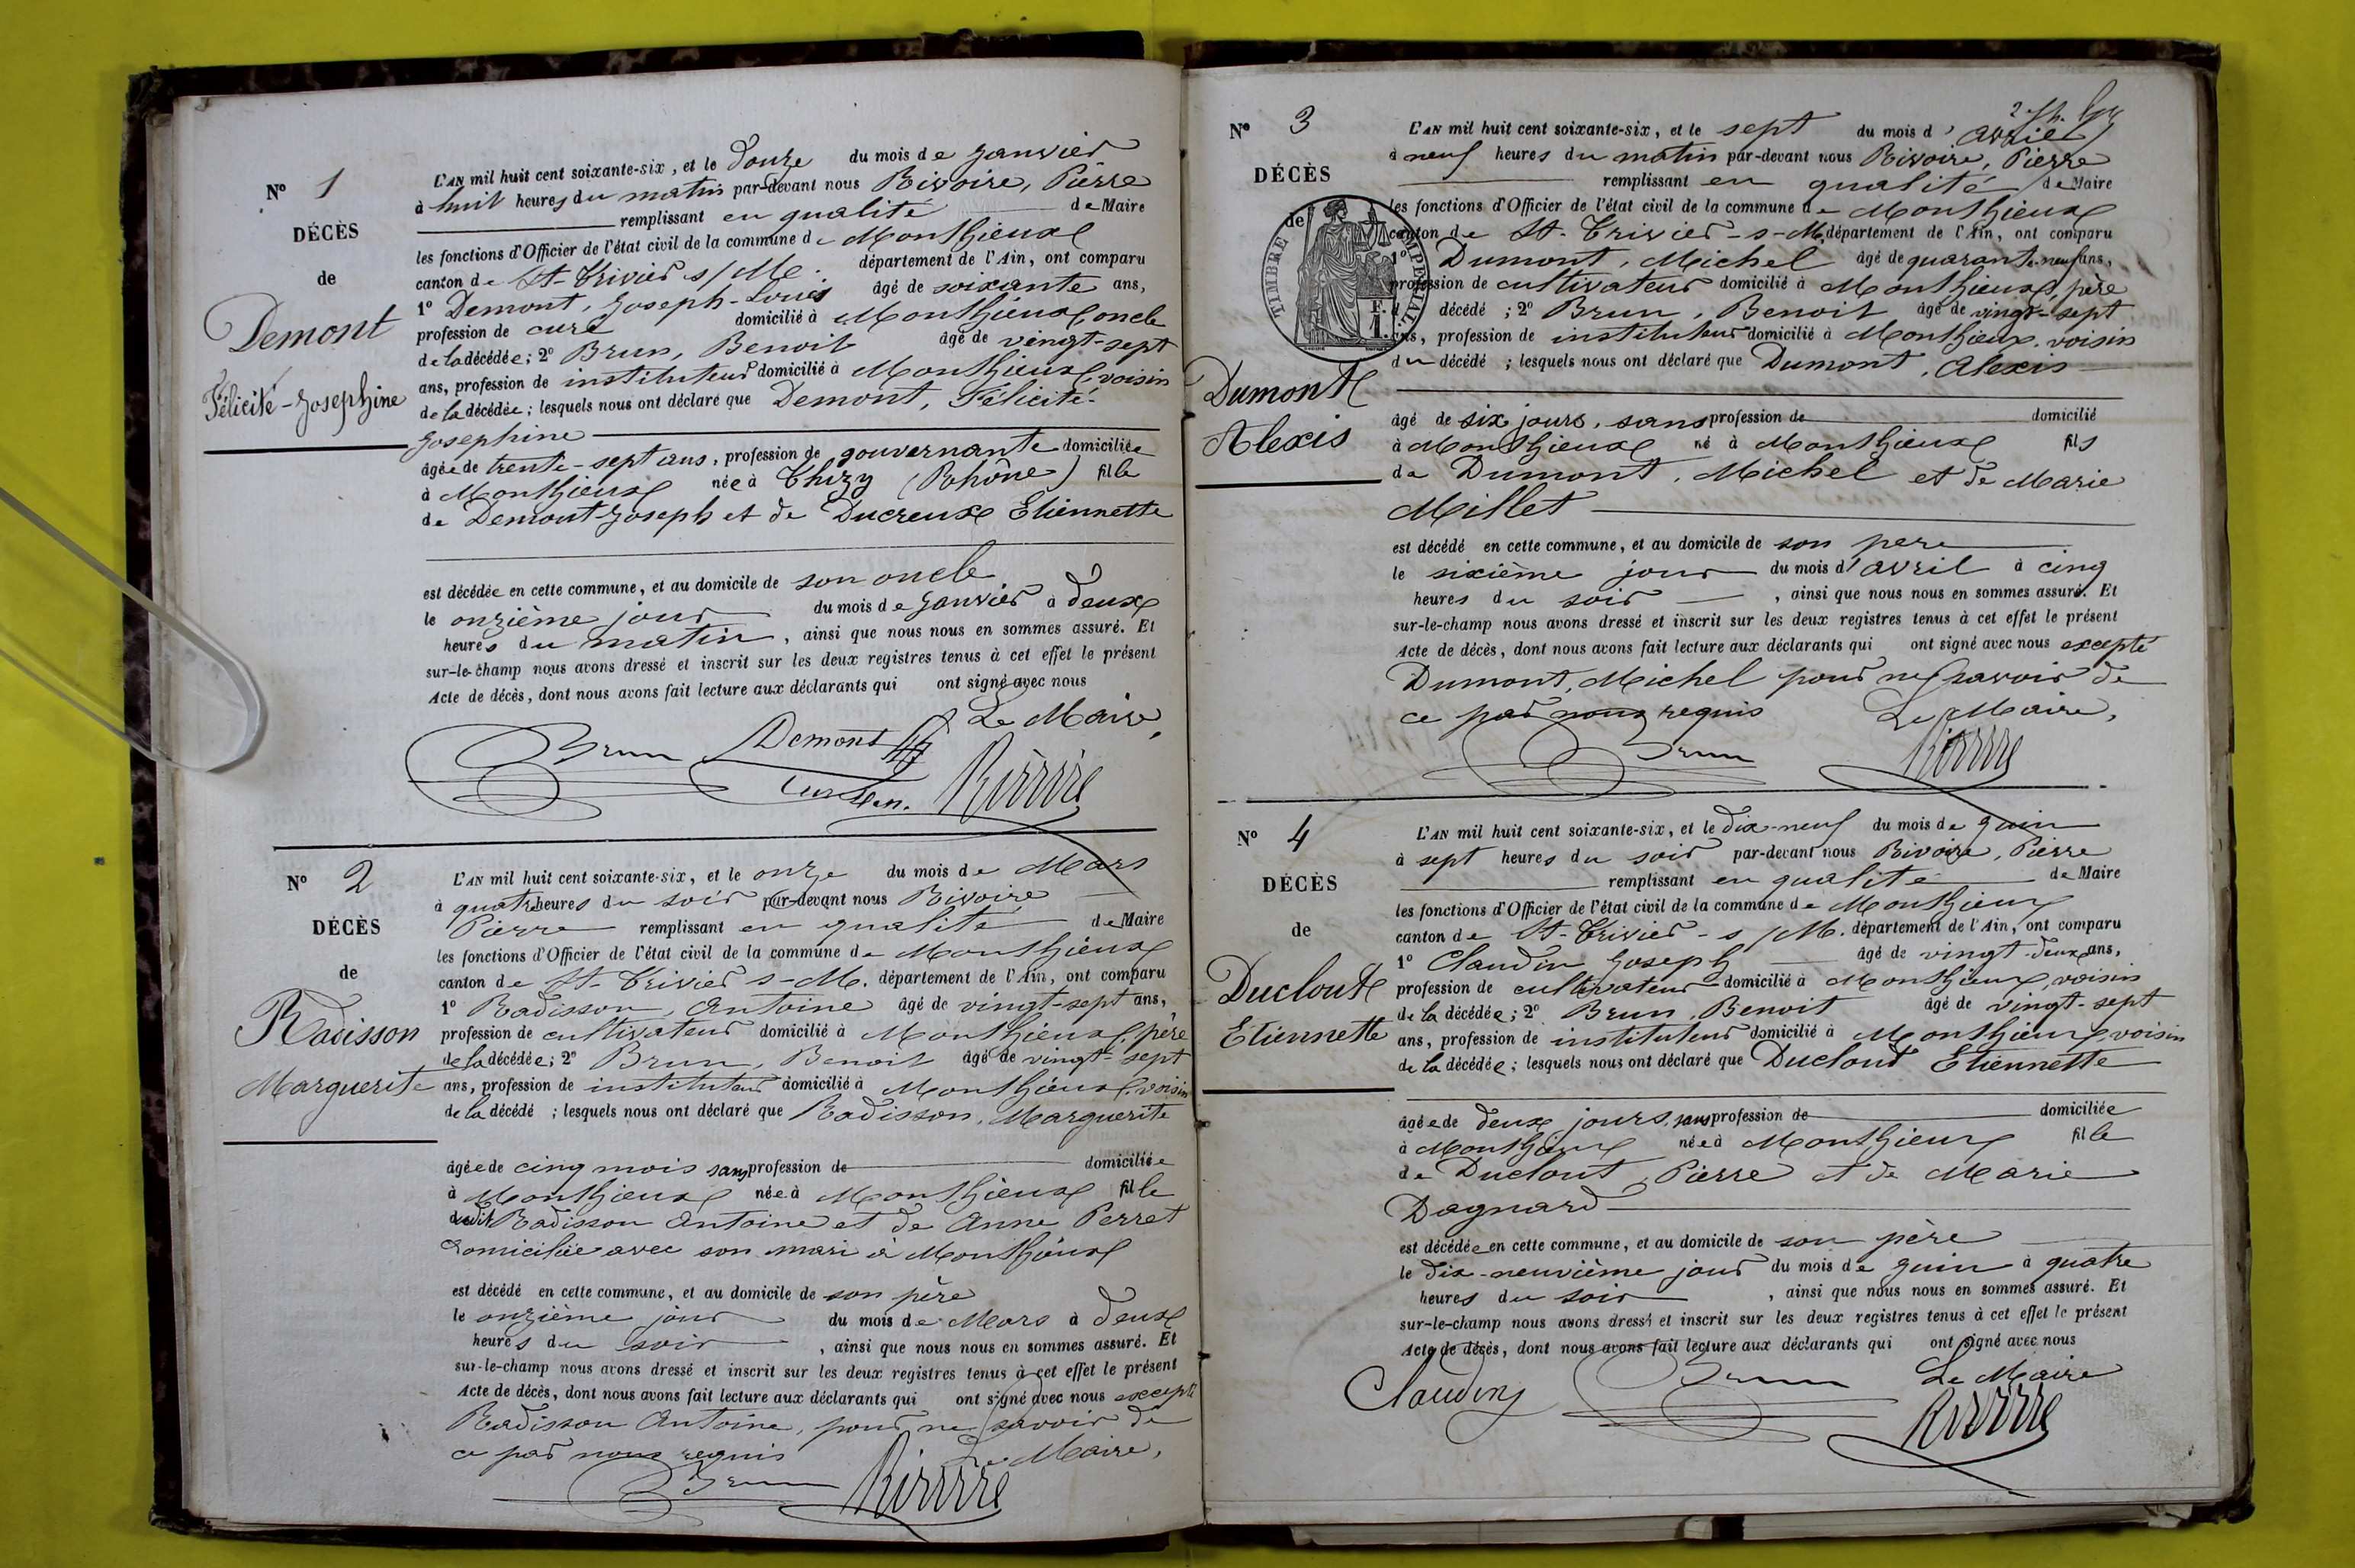 N° 1
DÉCÈS
de
Demont
Félicité-Josephine
L'AN mil huit cent soixante-six, et le douze du mois de Janvier
à huit heures du matin par-devant nous Rivoire, Pierre
remplissant en qualité de Maire
les fonctions d'Officier de l'état civil de la commune de Monthieux
canton de St-Trivier s/ Me. département de l'Ain, ont comparu
1° Demont, Joseph-Louis âgé de soixante ans,
profession de curé domicilié à Monthieux, oncle
de la décédée; 2° Brun, Benoit âgé de vingt-sept
ans, profession de instituteur domicilié à Monthieux, voisin
de la décédée; lesquels nous ont déclaré que Demont, Félicité-
Josephine
âgée de trente-sept ans, profession de gouvernante domiciliée
à Monthieux née à Thizy (Rhône) fille
de Demont Joseph et de Ducreux Etiennette
est décédée en cette commune, et au domicile de son oncle
le onzième jour du mois de Janvier à deux
heures du matin, ainsi que nous nous en sommes assuré. Et
sur-le-champ nous avons dressé et inscrit sur les deux registres tenus à cet effet le présent
Acte de décès, dont nous avons fait lecture aux déclarants qui ont signé avec nous
Le Maire,
Brun Demont Rivoire
N° 2
DÉCÈS
de
Radisson
Marguerite
L'AN mil huit cent soixante-six, et le onze du mois de Mars
à quatre heures du soir par-devant nous Rivoire
Pierre remplissant en qualité de Maire
les fonctions d'Officier de l'état civil de la commune de Monthieux
canton de St-Trivier s-M. département de l'Ain, ont comparu
1° Radisson, Antoine âgé de vingt-sept ans,
profession de cultivateur domicilié à Monthieux, père
de la décédée; 2° Brun, Benoit âgé de vingt-sept
ans, profession de instituteur domicilié à Monthieux, voisin
de la décédé; lesquels nous ont déclaré que Radisson, Marguerite
âgée de cinq mois sans profession de domiciliée
à Monthieux née à Monthieux fille
dudit Radisson Antoine et de Anne Perret
domiciliée avec son mari à Monthieux
est décédé en cette commune, et au domicile de son père
le onzième jour du mois de Mars à deux
heures du soir, ainsi que nous nous en sommes assuré. Et
sur-le-champ nous avons dressé et inscrit sur les deux registres tenus à cet effet le présent
Acte de décès, dont nous avons fait lecture aux déclarants qui ont signé avec nous excepté
Radisson Antoine, pour ne savoir de
ce par nous requis Le Maire,
Brun Rivoire
N° 3
DÉCÈS
de
TIMBRE IMPERIAL
Dumont
Alexis
L'AN mil huit cent soixante-six, et le sept du mois d'avril
à neuf heures du matin par-devant nous Rivoire, Pierre
remplissant en qualité de Maire
les fonctions d'Officier de l'état civil de la commune de Monthieux
canton de St-Trivier-s-M, département de l'Ain, ont comparu
1° Dumont, Michel âgé de quarante-neuf ans,
profession de cultivateur domicilié à Monthieux, père
du décédé; 2° Brun, Benoit âgé de vingt-sept
ans, profession de instituteur domicilié à Monthieux, voisin
du décédé; lesquels nous ont déclaré que Dumont, Alexis
âgé de six jours, sans profession de domicilié
à Monthieux né à Monthieux fils
de Dumont, Michel et de Marie
Millet
est décédé en cette commune, et au domicile de son père
le sixième jour du mois d'avril à cinq
heures du soir, ainsi que nous nous en sommes assuré. Et
sur-le-champ nous avons dressé et inscrit sur les deux registres tenus à cet effet le présent
Acte de décès, dont nous avons fait lecture aux déclarants qui ont signé avec nous excepté
Dumont, Michel pour ne savoir de
ce par nous requis Le Maire,
Brun Rivoire
N° 4
DÉCÈS
de
Ducloux
Etiennette
L'AN mil huit cent soixante-six, et le dix-neuf du mois de Juin
à sept heures du soir par-devant nous Rivoire, Pierre
remplissant en qualité de Maire
les fonctions d'Officier de l'état civil de la commune de Monthieux
canton de St-Trivier-s/M. département de l'Ain, ont comparu
1° Claudin Joseph âgé de vingt-deux ans,
profession de cultivateur domicilié à Monthieux, voisin
de la décédée; 2° Brun, Benoit âgé de vingt-sept
ans, profession de instituteur domicilié à Monthieux, voisin
de la décédée; lesquels nous ont déclaré que Duclout Etiennette
âgée de deux jours, sans profession de domiciliée
à Monthieux née à Monthieux fille
de Duclout, Pierre et de Marie
Dagnard
est décédée en cette commune, et au domicile de son père
le dix-neuvième jour du mois de Juin à quatre
heures du soir, ainsi que nous nous en sommes assuré. Et
sur-le-champ nous avons dressé et inscrit sur les deux registres tenus à cet effet le présent
Acte de décès, dont nous avons fait lecture aux déclarants qui ont signé avec nous
Le Maire
Claudin Brun Rivoire